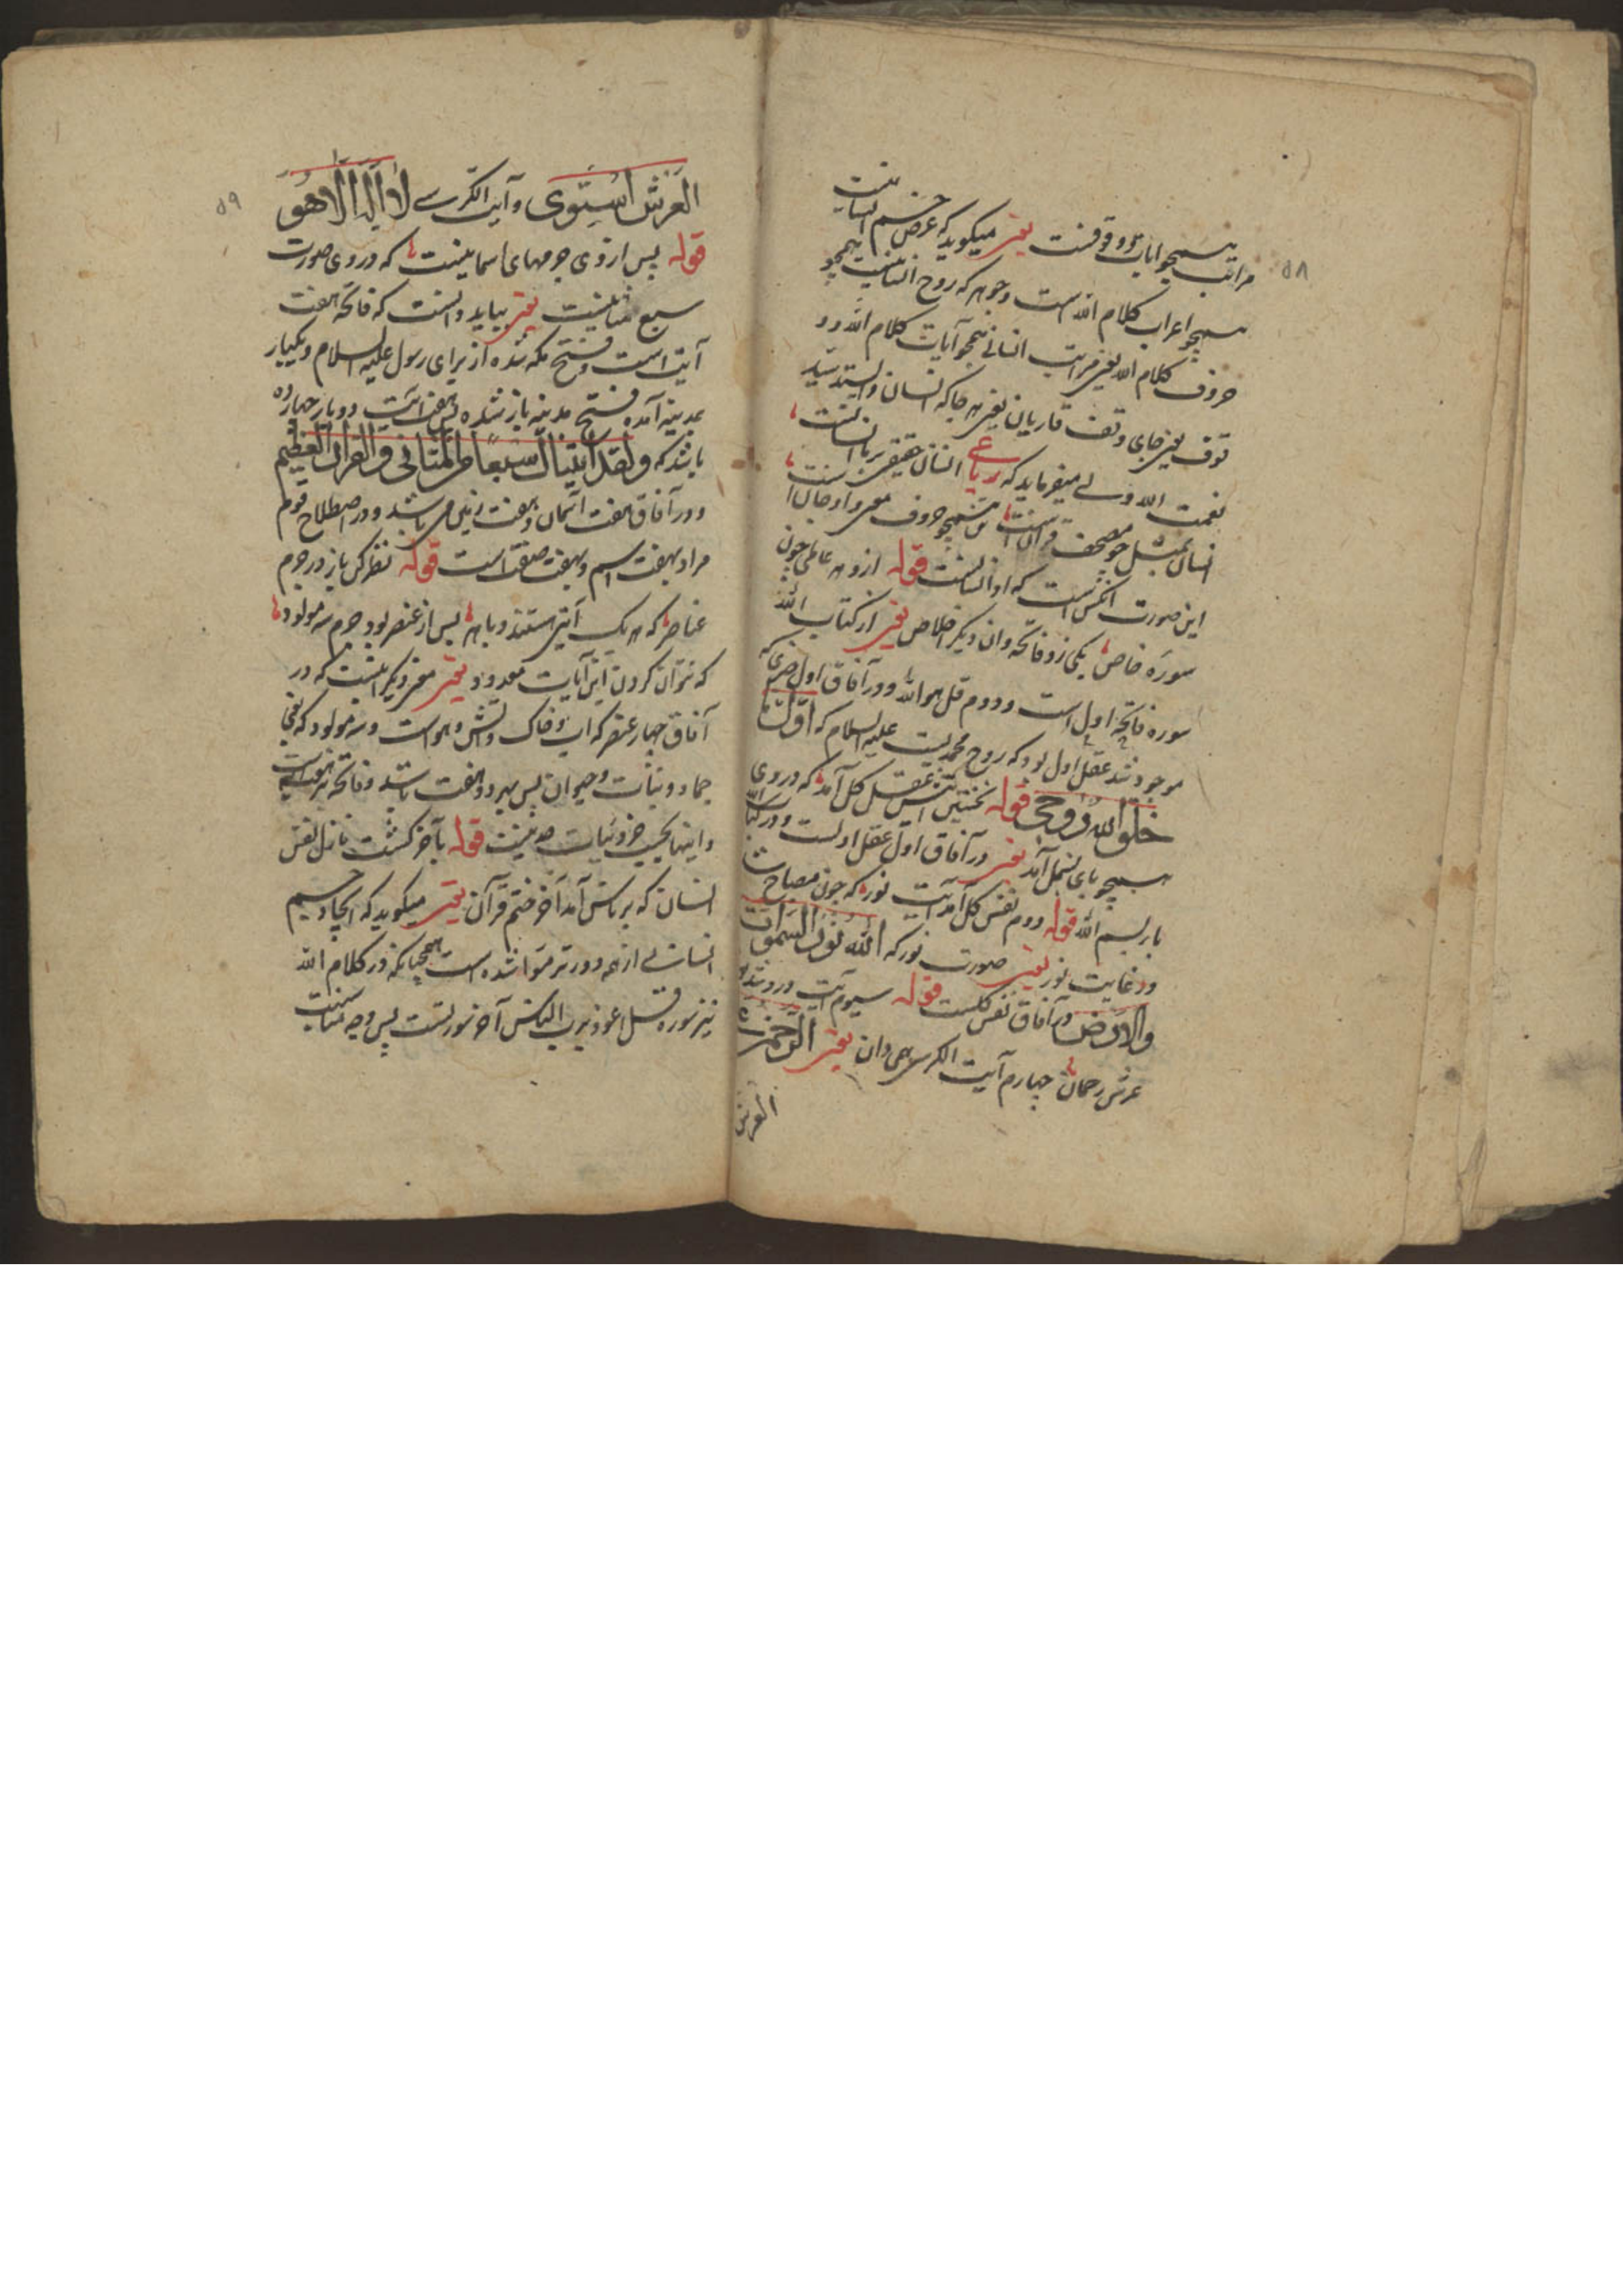 ۵۸
مراتب همچو ایات و وقوفست یعنی میکوید که عرض جسم انسانیست
همچو اعراب کلام الله است و جوهر که روح انسانیست همچو
حروف کلام الله یعنی مراتب انسانی همچو آیات کلام الله و و
قوف یعنی جای وقف قاریان یعنی هر جا که انسان
نعمت الله ولی میفرماید که رباعی انسان حقیقی
انسان بمثل چو مصحف قرآن است همچو حروف معنی و او جان است
این صورت انکس است که او انسانست قوله ازو هر عالمی چون
سوره خاص یکی زو فاتحه وان دیکر اخلاص یعنی از کتاب الله
سوره فاتحه اول است و دوم قل هو الله و در آفاق اول چیزی که
موجود شد عقل اول بود که روح محمدیست علیه السلام که اول ما
خلق الله روحی قوله نخستین آیتش عقل کل آمد که در وی
همچو بای بسمل آمد یعنی در آفاق اول عقل اولست و در کتاب الله
بای بسم الله قوله دوم نفس کل آمد آیت نور که چون مصباح شد
در غایت نور یعنی صورت نور که الله نور السموات
والارض در آفاق نفس کلست قوله سیوم آیت درو شد
عرش رحمان چهارم آیت الکرسی همی دان یعنی الرحمن علی
العرش
۵۹
العرش استوی و آیت الکرسے لا اله الا هو
قوله پس از وی جرمهای اسمانیست که در وی صورت
سبع مثانیست یعنی بباید دانست که فاتحه هفت
آیت است و فتح مکه شده از برای رسول علیه السلام و یکبار
بمدینه آمده فتح مدینه باز شده پس هفت آیت دو بار چهارده
باشد که ولقد آتیناک سبعا من المثانی والقرآن العظیم
و در آفاق هفت آسمان و هفت زمین می باشد و در اصطلاح قوم
مراد بهفت اسم و بهفت صفة است قوله نظر کن باز در جرم
عناصر که هر یک آیتی هستند و باهر پس از عنصر بود جرم سه مولود
که نتوان کردن این آیات معدود یعنی معنی دیکر اینست که در
آفاق چهار عنصر که آب و خاک و آتش و هواست و سه مولود که یعنی
جماد و نبات و حیوان پس هر دو هفت باشد و فاتحه نیز هفت است
و اینها بحسب جزئیات قوله بآخر کشت نازل نفس
انسان که بر ناس آمد آخر ختم قرآن یعنی میکوید که ایجاد جسم
انسانے از همه دورتر متوا شده است همچنانکه در کلام الله
نیز سوره قل اعوذ برب الناس آخر سورتست پس وجه مناسبت